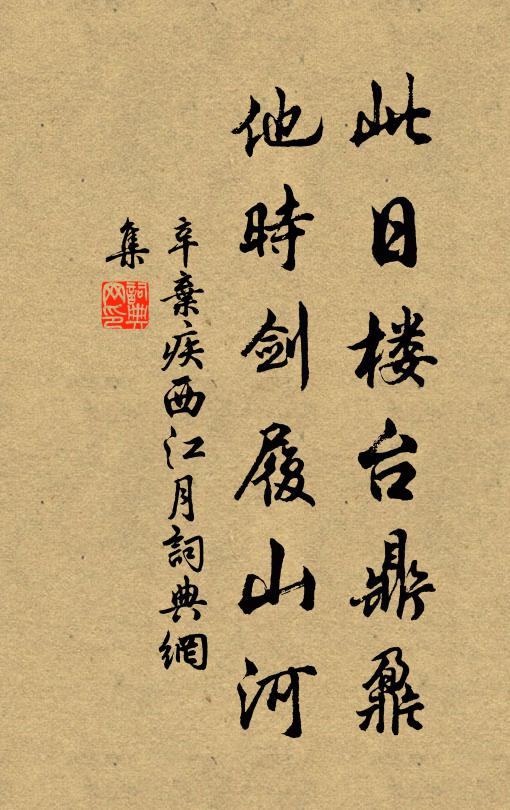 此日楼台鼎鼐
他時剑履山河
辛棄疾西江月詞典網
集
詞典网印